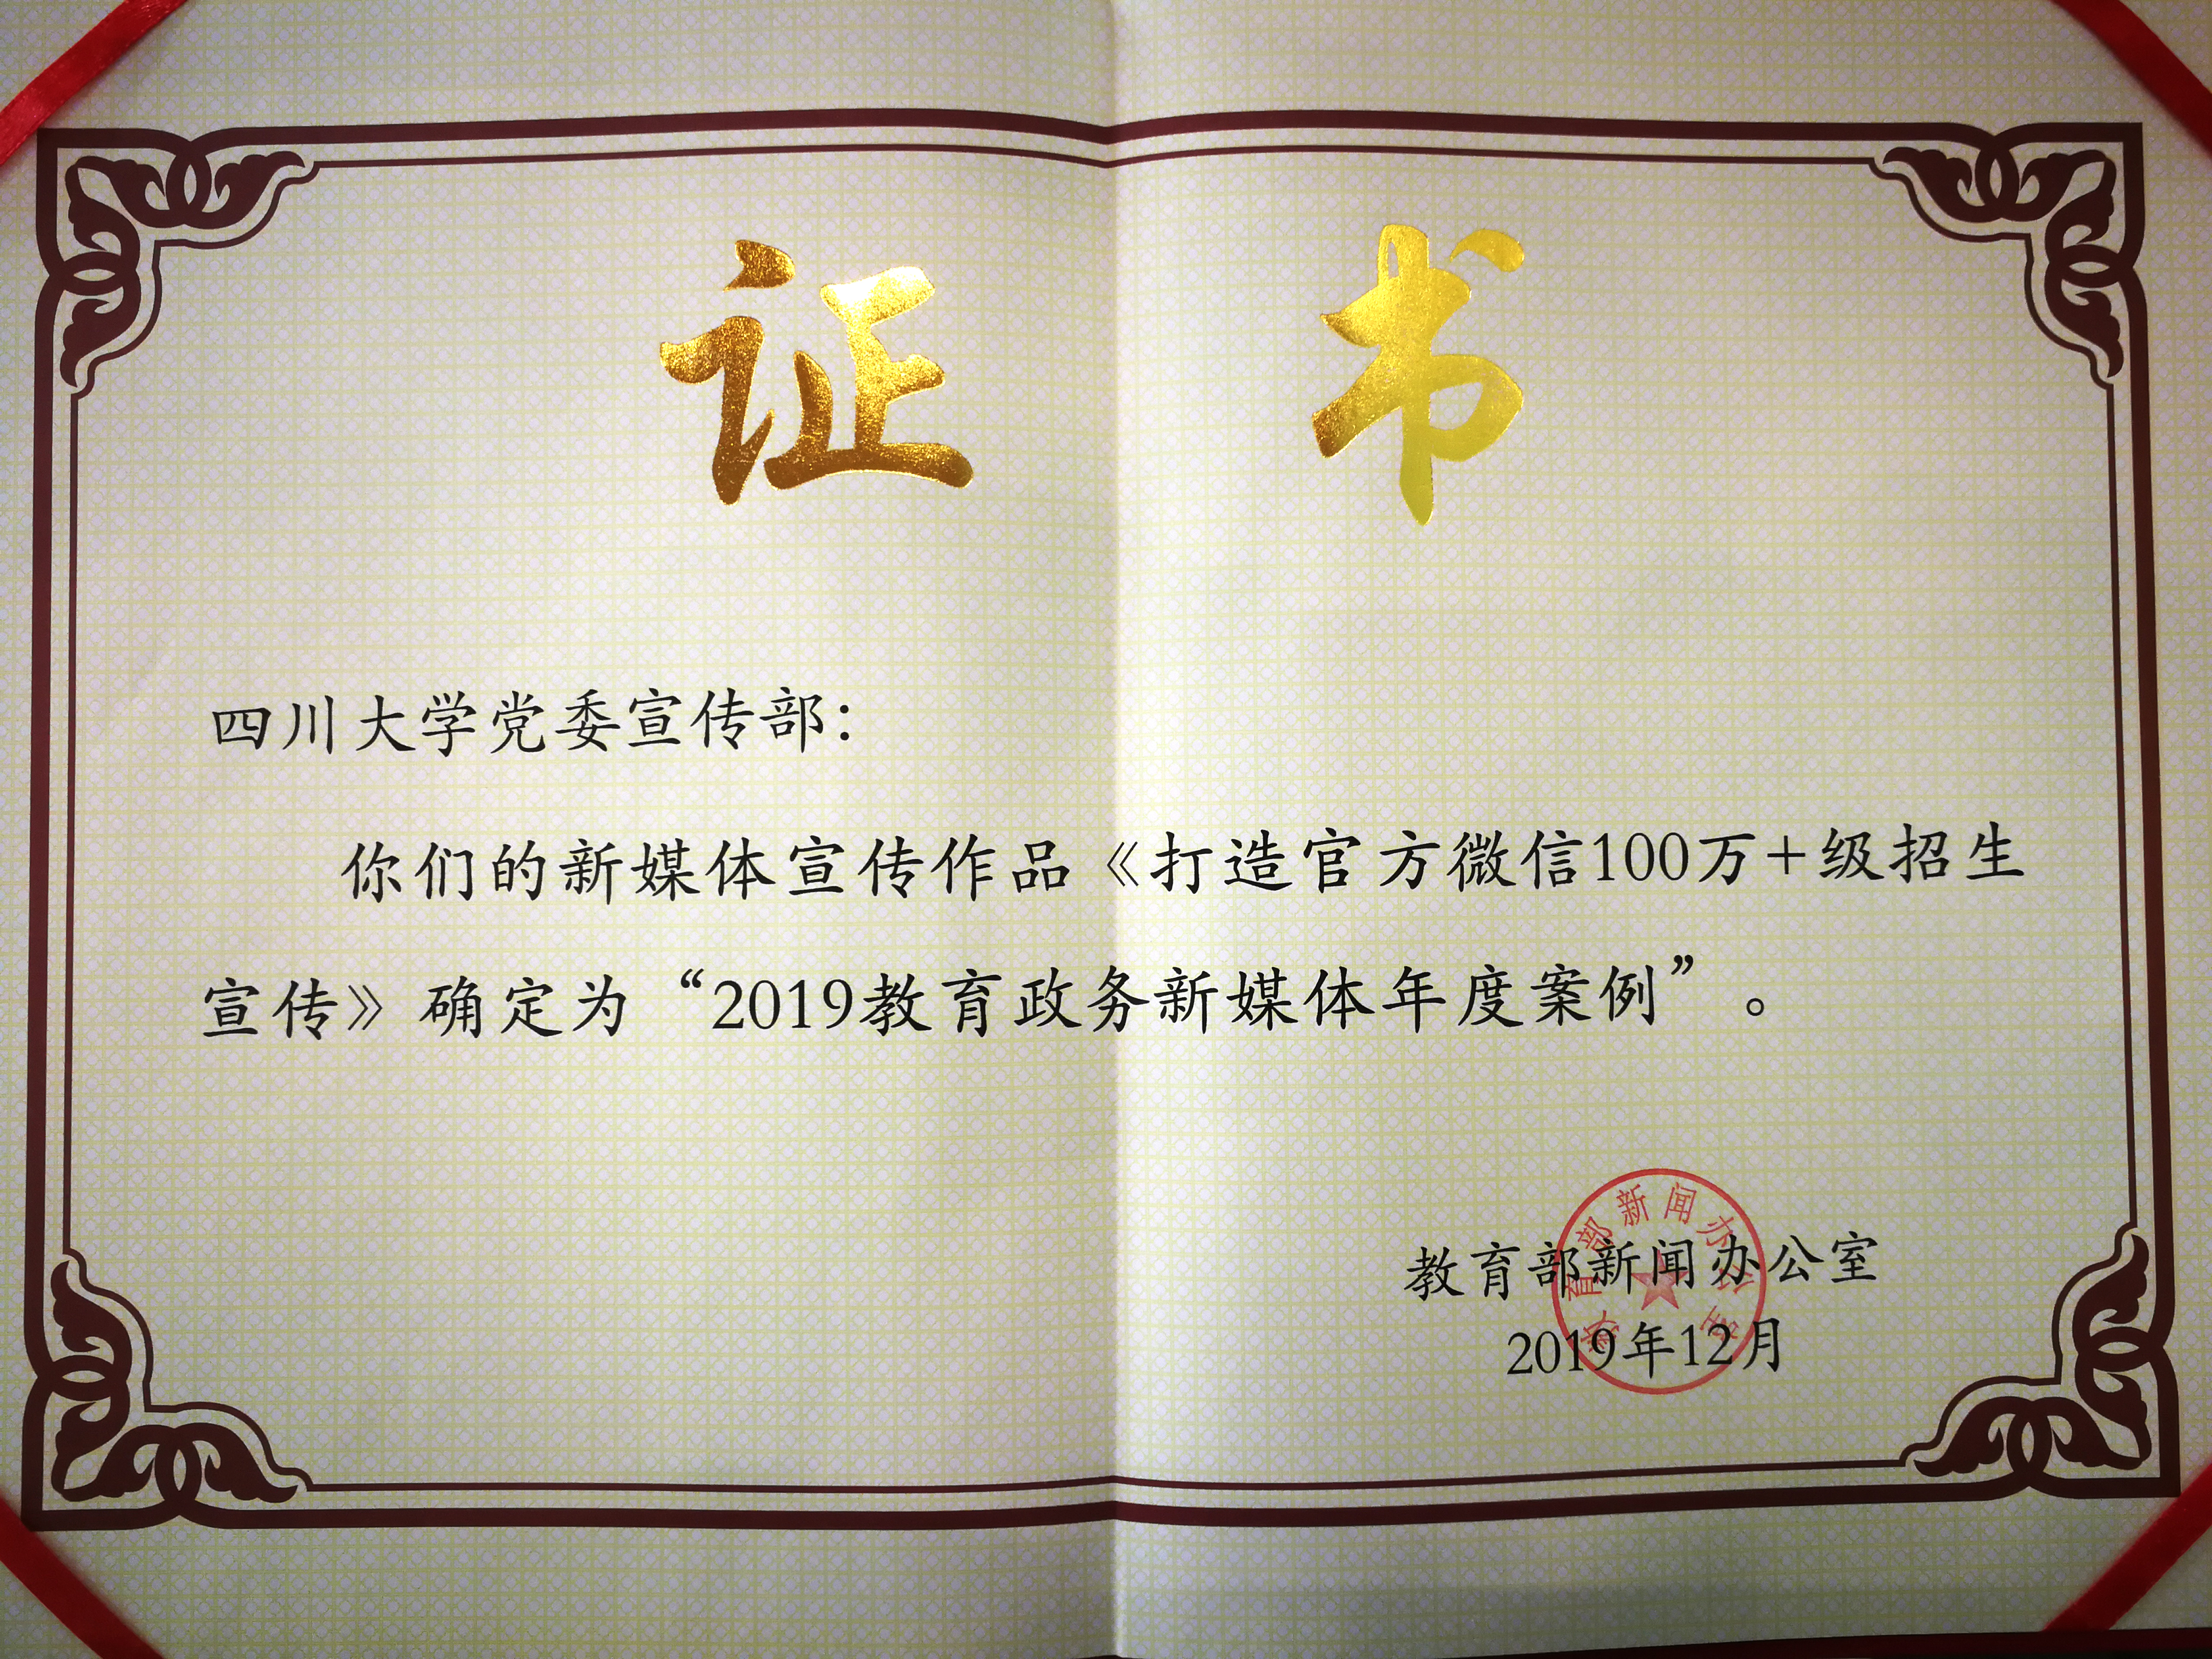 证书
四川大学党委宣传部：
你们的新媒体宣传作品《打造官方微信100万+级招生
宣传》确定为“2019教育政务新媒体年度案例”。
教育部新闻办公室
2019年12月
教育部新闻办公室